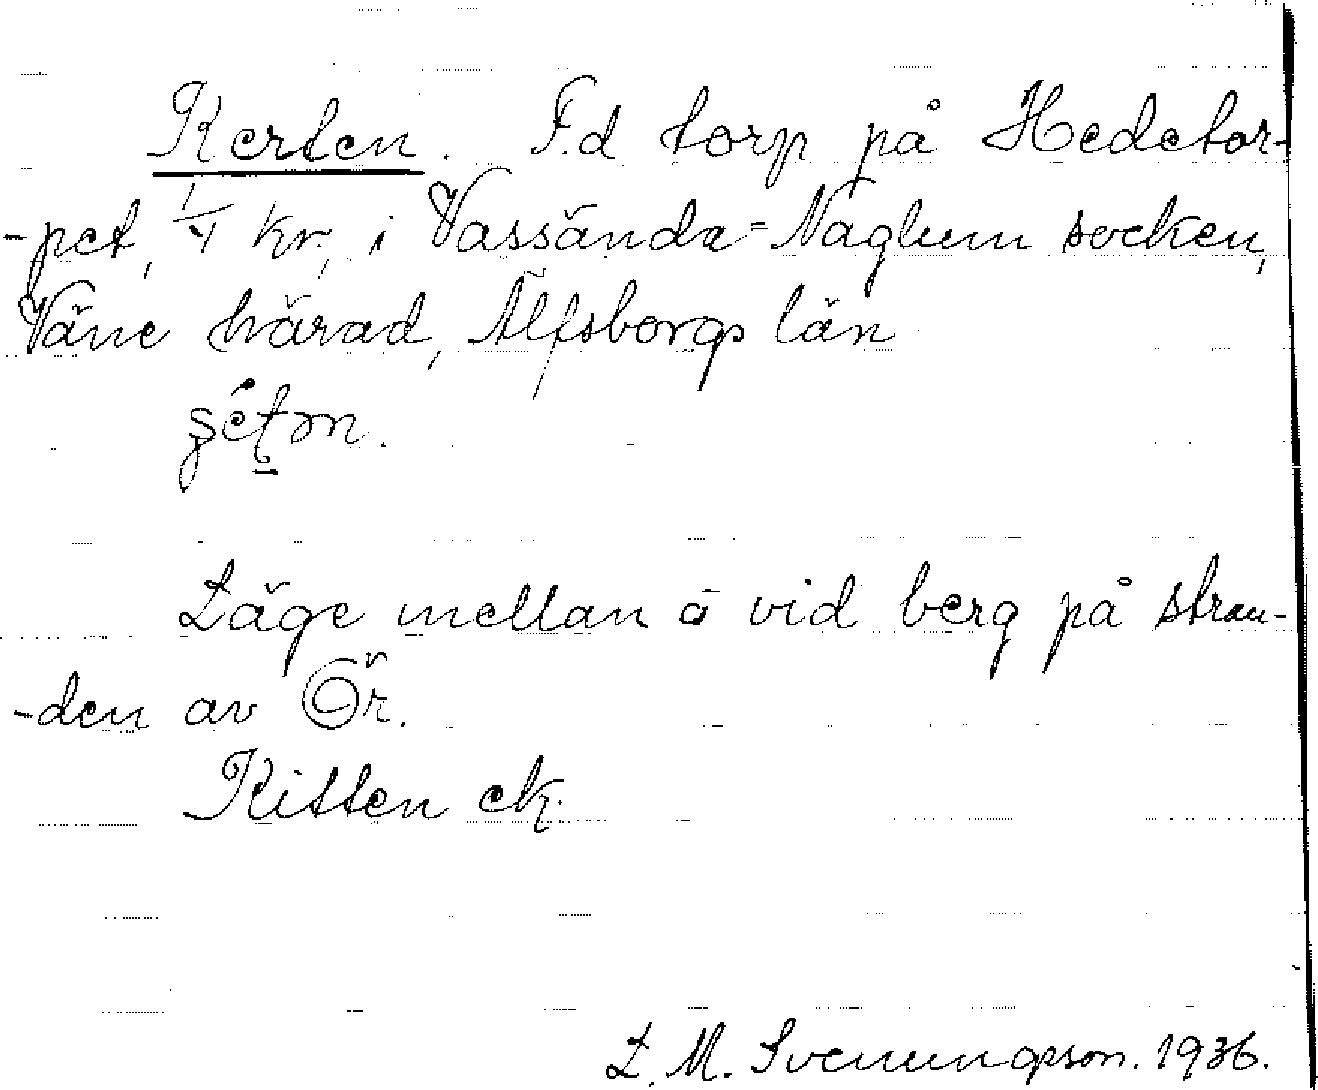 Kerten. F.d torp på Hedetor-
-pet, 1/4 kr, i Vassända-Naglum socken,
Väne härad, Älfsborgs län
Läge mellan å vid berg på stran-
-den av Ör.
Kitten ek.
L. M. Svenungsson. 1936.